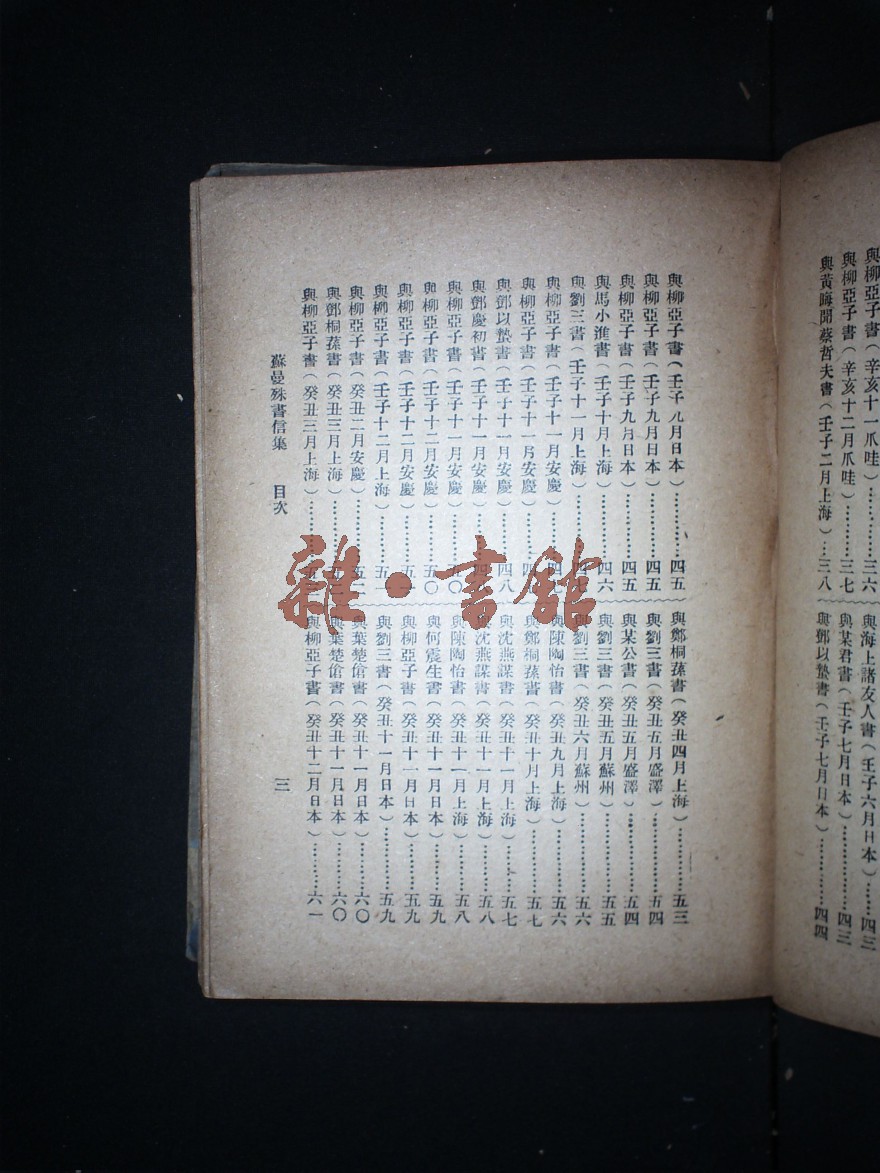 與柳亞子書(辛亥十一爪哇)………三六
與柳亞子書(辛亥十二月爪哇)………三七
與黃晦聞蔡哲夫書(壬子二月上海)…三八
與海上諸友人書(壬子六月日本)……四三
與某君書(壬子七月日本)…………四三
與鄧以蟄書(壬子七月日本)…………四四
與柳亞子書(壬子八月日本)…………四五
與柳亞子書(壬子九月日本)…………四五
與柳亞子書(壬子九月日本)…………四五
與馬小進書(壬子十月上海)…………四六
與劉三書(壬子十一月上海)…………四七
與柳亞子書(壬子十一月安慶)………四
與柳亞子書(壬子十一月安慶)………四
與鄧以蟄書(壬子十一月安慶)………四八
與鄧慶初書(壬子十一月安慶)………四
與柳亞子書(壬子十一月安慶)………五〇
與柳亞子書(壬子十二月安慶)………五〇
與柳亞子書(壬子十二月安慶)………五
與柳亞子書(壬子十二月上海)………五
與柳亞子書(癸丑二月安慶)…………五
與鄭桐蓀書(癸丑三月上海)…………五
與柳亞子書(癸丑三月上海)…………五
與鄭桐蓀書(癸丑四月上海)…………五三
與劉三書(癸丑五月盛澤)……………五四
與某公書(癸丑五月盛澤)……………五四
與劉三書(癸丑五月蘇州)……………五五
與劉三書(癸丑六月蘇州)……………五六
與陳陶怡書(癸丑九月上海)…………五六
與鄭桐蓀書(癸丑十月上海)…………五七
與沈燕謀書(癸丑十一月上海)………五七
與沈燕謀書(癸丑十一月上海)………五八
與陳陶怡書(癸丑十一月上海)………五八
與何震生書(癸丑十一月日本)………五九
與柳亞子書(癸丑十一月日本)………五九
與劉三書(癸丑十一月日本)…………五九
與葉楚傖書(癸丑十一月日本)………六〇
與葉楚傖書(癸丑十一月日本)………六〇
與柳亞子書(癸丑十二月日本)………六一
蘇曼殊書信集 目次 三
雜·書館